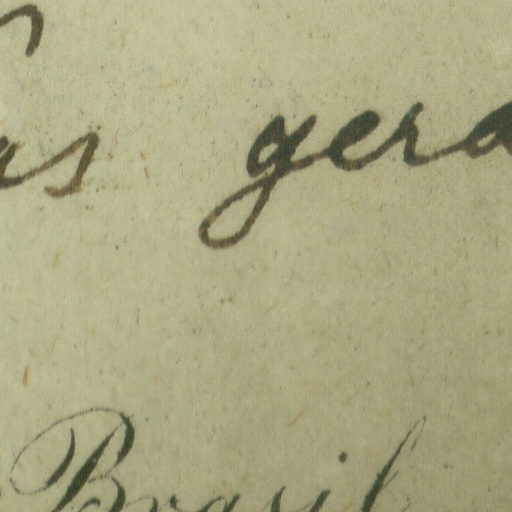 as gera
Brasil